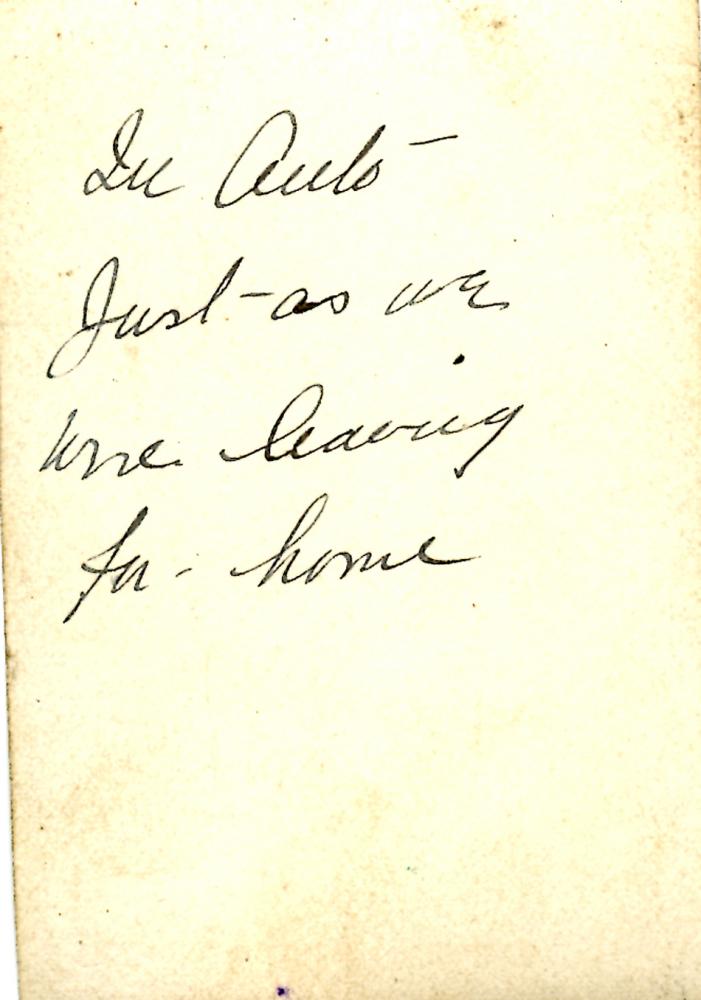 In Auto
Just as we
were leaving
for home